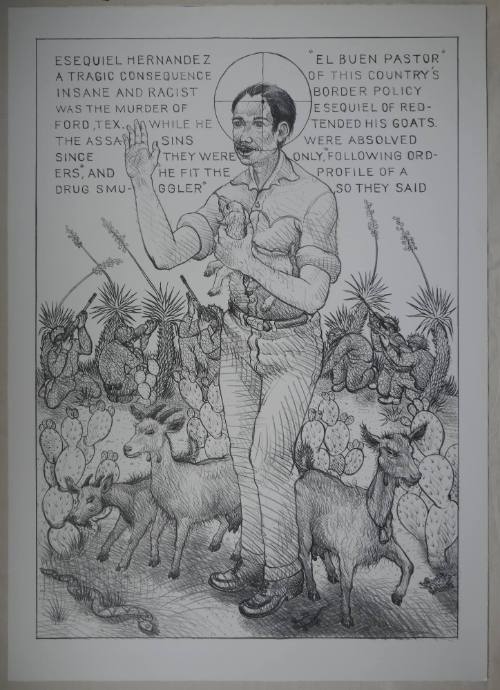 ESEQUIEL HERNANDEZ "EL BUEN PASTOR"
A TRAGIC CONSEQUENCE OF THIS COUNTRY'S
INSANE AND RACIST BORDER POLICY
WAS THE MURDER OF ESEQUIEL OF RED-
FORD, TEX... WHILE HE TENDED HIS GOATS.
THE ASSASSINS WERE ABSOLVED
SINCE THEY WERE ONLY, "FOLLOWING ORD-
ERS", AND HE FIT THE PROFILE OF A
DRUG SMU- GGLER" SO THEY SAID